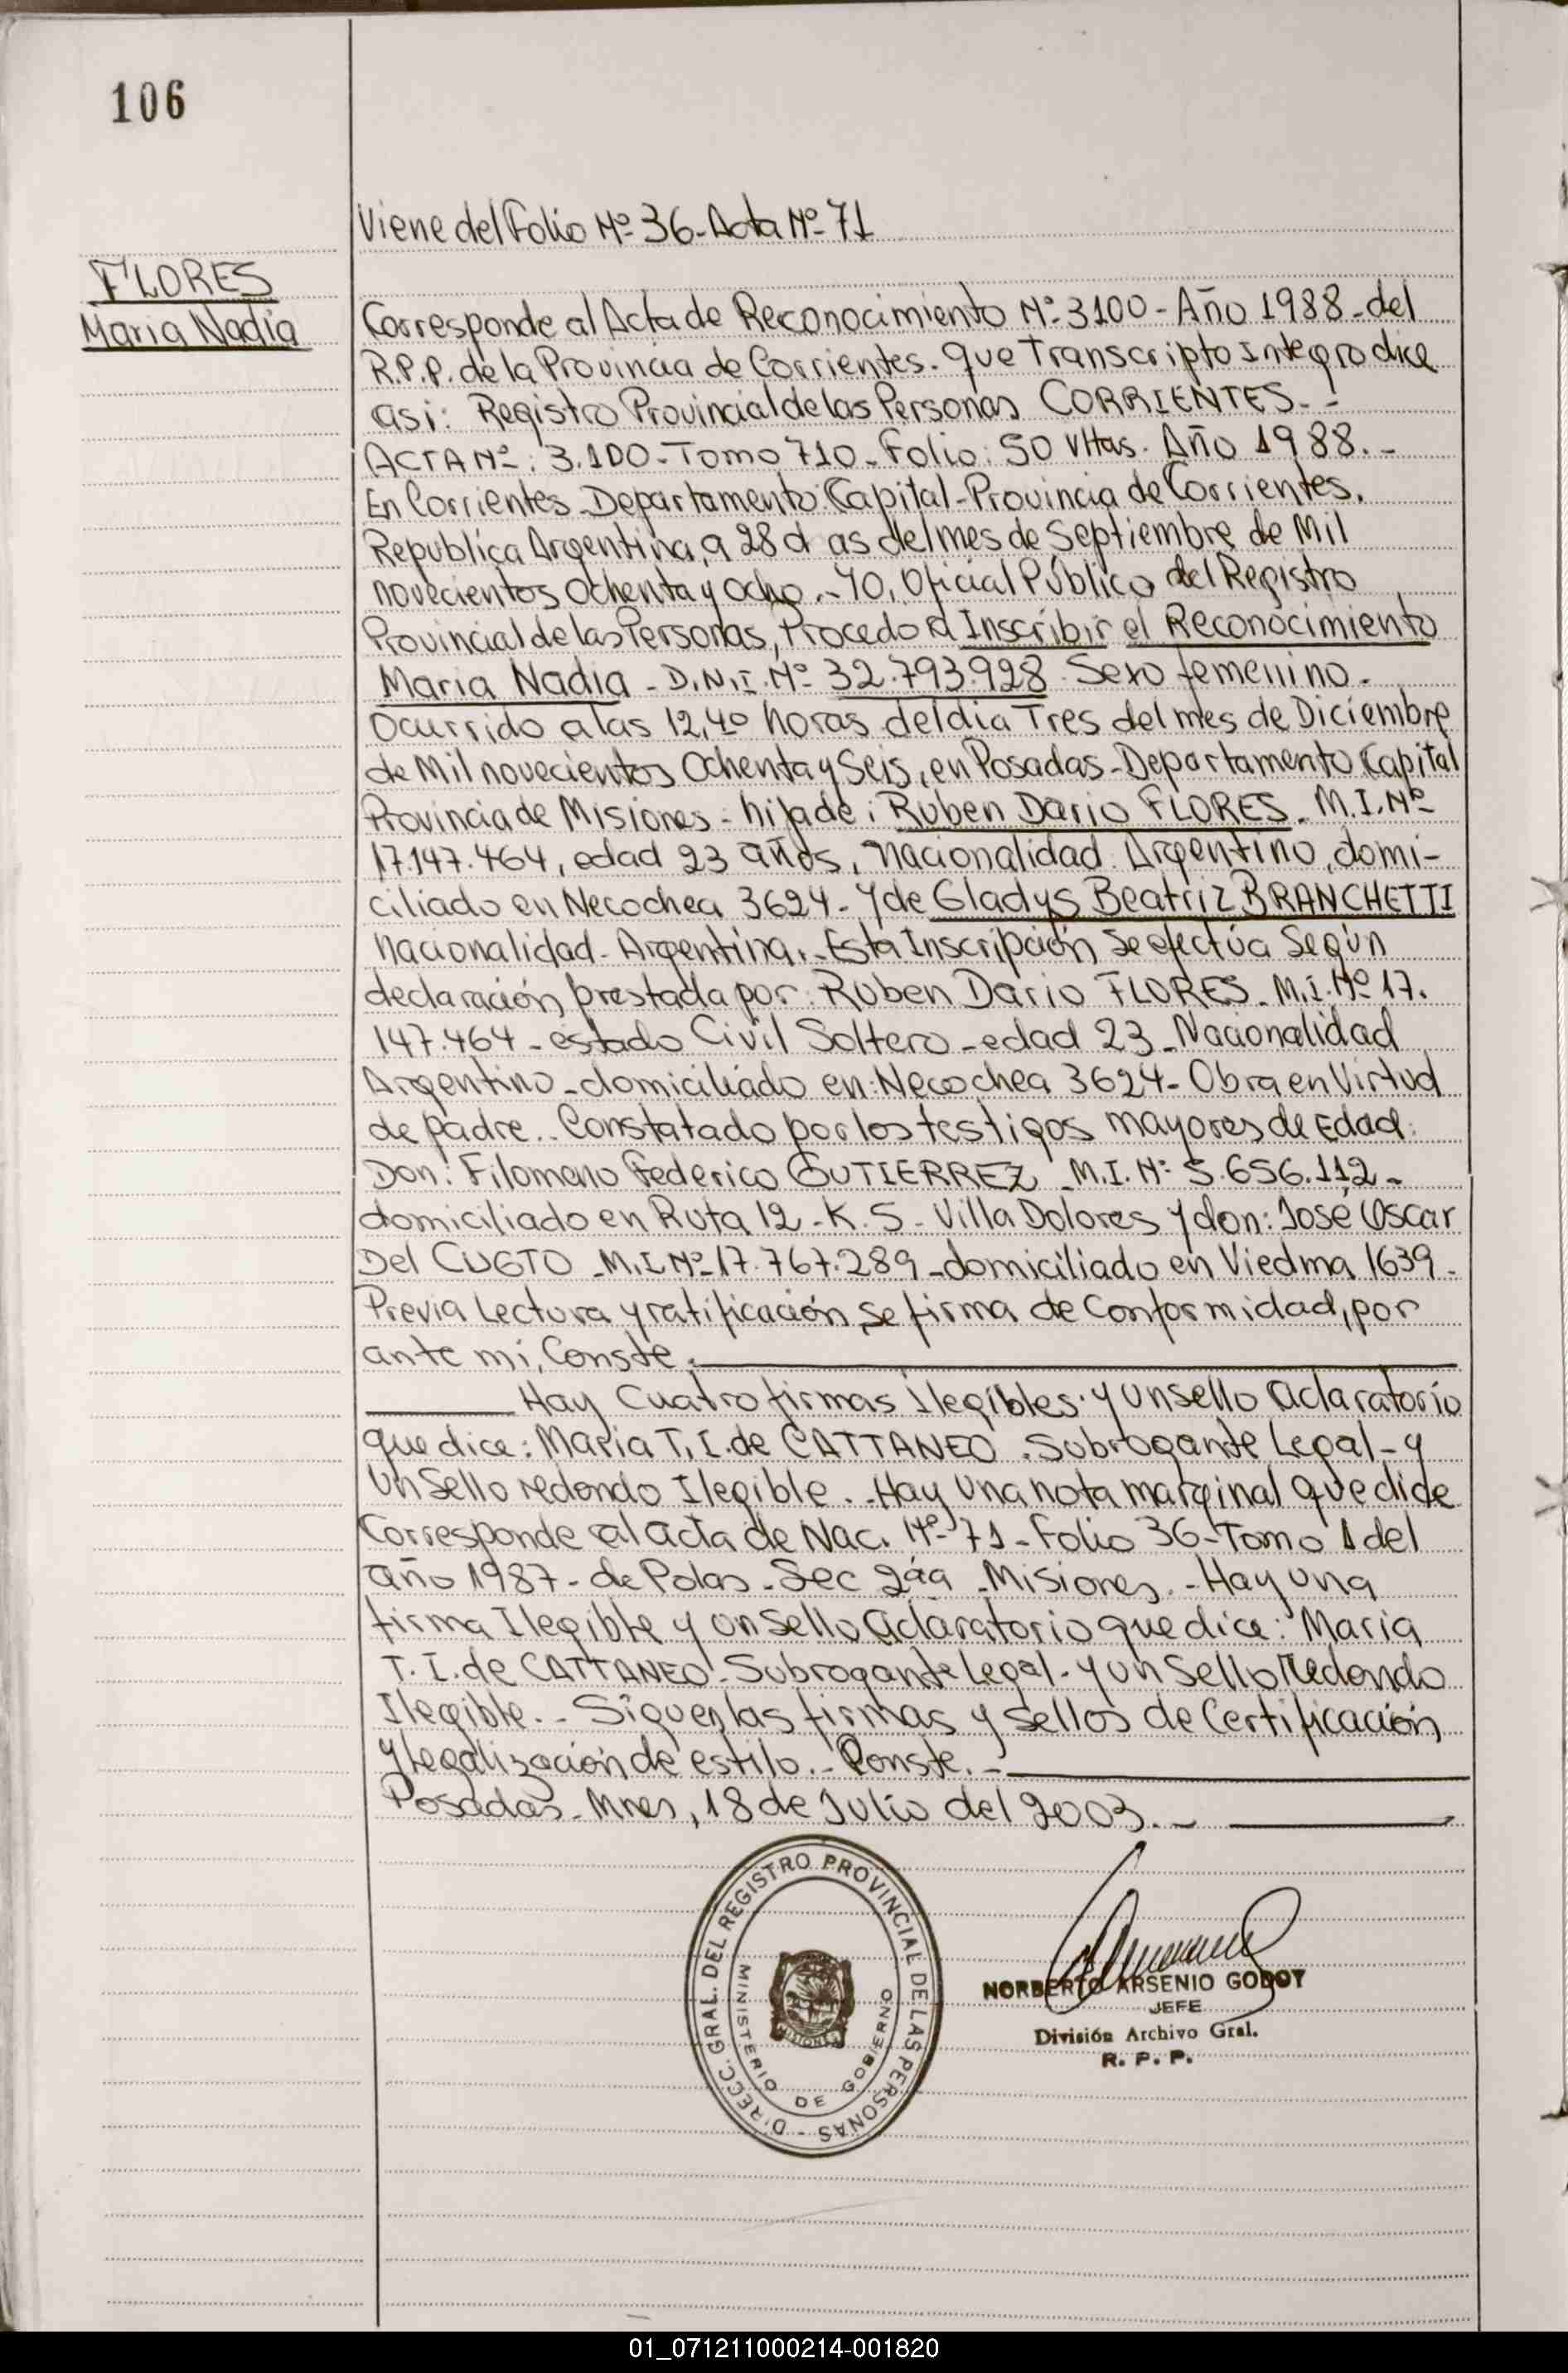 106
Viene del Folio Nº 36 - Acta Nº 71
FLORES
Maria Nadia
Corresponde al Acta de Reconocimiento Nº 3100 - Año 1988 - del
R.P.P. de la Provincia de Corrientes. que Transcripto Integro dice
asi: Registro Provincial de las Personas CORRIENTES.-
ACTA Nº: 3.100 - Tomo 710 - Folio: 50 Vltas. Año 1988.-
En Corrientes - Departamento: Capital - Provincia de Corrientes.
Republica Argentina, a 28 d as del mes de Septiembre de Mil
novecientos Ochenta y ocho.- YO, Oficial Público del Registro
Provincial de las Personas, Procedo a Inscribir el Reconocimiento
Maria Nadia - D.N.I. Nº 32.793.928. Sexo femenino.
Ocurrido a las 12,40 horas del dia Tres del mes de Diciembre
de Mil novecientos Ochenta y Seis, en Posadas - Departamento Capital
Provincia de Misiones - hija de: Ruben Dario FLORES. M.I. Nº
17.147.464, edad 23 años, nacionalidad. Argentino, domi-
ciliado en Necochea 3624 - Y de Gladys Beatriz BRANCHETTI
nacionalidad - Argentina.- Esta Inscripción Se efectúa Según
declaración prestada por: Ruben Dario FLORES - M.I. Nº 17.
147.464 - estado Civil Soltero - edad 23 - Nacionalidad
Argentino - domiciliado en: Necochea 3624 - Obra en Virtud
de padre.. Constatado por los testigos mayores de Edad:
Don: Filomeno Federico GUTIERREZ - M.I. Nº 5.656.112 -
domiciliado en Ruta 12 - K. 5 - Villa Dolores y don: José Oscar
Del CUGTO - M.I. Nº 17.767.289 - domiciliado en Viedma 1639 -
Previa Lectura y ratificación, se firma de Conformidad, por
ante mi, Conste.
Hay Cuatro firmas Ilegibles. y un sello aclaratorio
que dice: Maria T. I. de CATTANEO. Subrogante Legal - y
Un Sello redondo Ilegible.- Hay Una nota marginal que dide
Corresponde al acta de Nac. Nº 71 - Folio 36 - Tomo 1 del
año 1987 - de Polas - Sec 2ªa - Misiones.- Hay Una
firma Ilegible y un Sello aclaratorio que dice: Maria
T. I. de CATTANEO - Subrogante Legal - y un Sello Redondo
Ilegible.- Siguen las firmas y Sellos de Certificación
y Legalización de estilo.- Conste.-
Posadas - Mnes, 18 de Julio del 2003.-
DIRECC. GRAL. DEL REGISTRO PROVINCIAL DE LAS PERSONAS -
MINISTERIO DE GOBIERNO
MISIONES
NORBERTO ARSENIO GODOY
JEFE
División Archivo Gral.
R. P. P.
01_071211000214-001820